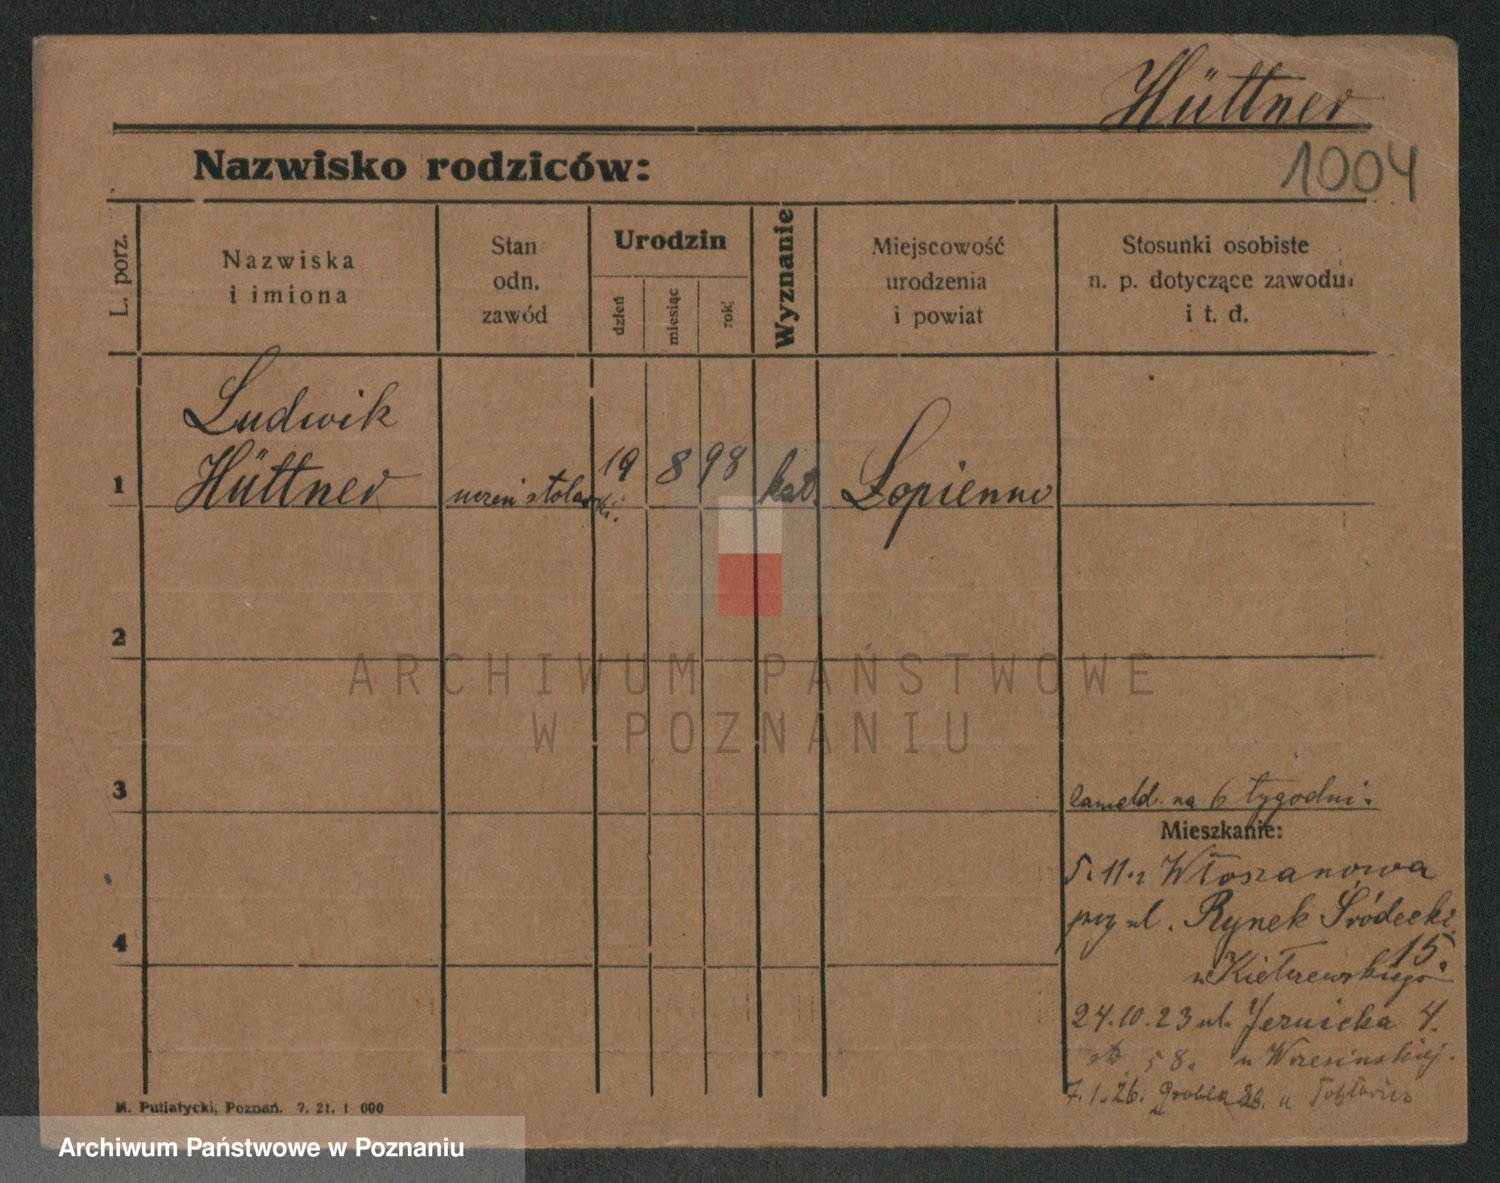 Hüttner
1004
Nazwisko rodziców:
L. porz.
Nazwiska
i imiona
Stan
odn.
zawód
Urodzin
dzień
miesiąc
rok
Wyznanie
Miejscowość
urodzenia
i powiat
Stosunki osobiste
n. p. dotyczące zawodu
i t. d.
1
Ludwik
Hüttner
uczeń stolarski.
19
8
98
kat.
Łopienno
2
3
4
na 6 tygodni.
Mieszkanie:
5.11. Włoszanowa
przy ul. Rynek Śródecki
15.
u Kiełczewskiego
24.10.23 ul. Jeżnicka 4.
58. u Wrzesińskiej.
7.1.26. Grobla u
M. Putiatycki, Poznań. 7. 21. 1 000
ARCHIWUM PAŃSTWOWE
W POZNANIU
Archiwum Państwowe w Poznaniu